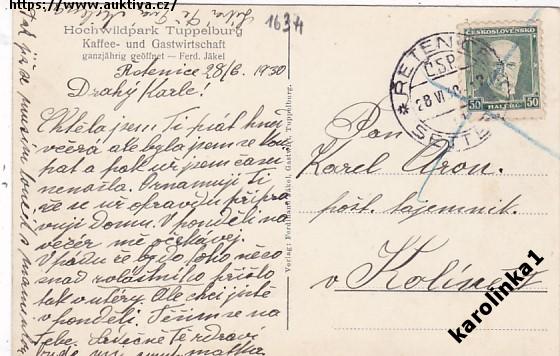 https://www.auktiva.cz/
1634
Hochwildpark Tuppelburg
Kaffee- und Gastwirtschaft
ganzjährig geöffnet — Ferd. Jäkel
Retenice 28/6. 1930
Drahý Karle!
Chtěla jsem Ti psát hned
včera ale byla jsem se kou-
pat a pak už jsem času
nenašla. Oznamuji Ti
že se už opravdu připra
vuji domů. V pondělí na
večer mě očekávej.
V pádu že by do toho něco
snad zvláštního přišlo
tak v úterý. Ale chci jistě
v pondělí. Těším se na
Tebe. Srdečně Tě zdraví
matka.
Verlag: Ferdinand Jäkel, Gastwirt, Tuppelburg.
ČESKOSLOVENSKO
50 HALÉŘŮ 50
ŘETENICE
ČSP
28 VI 30
Pan
Karel Oron.
pošt. tajemník.
v Kolíně
karolinka1